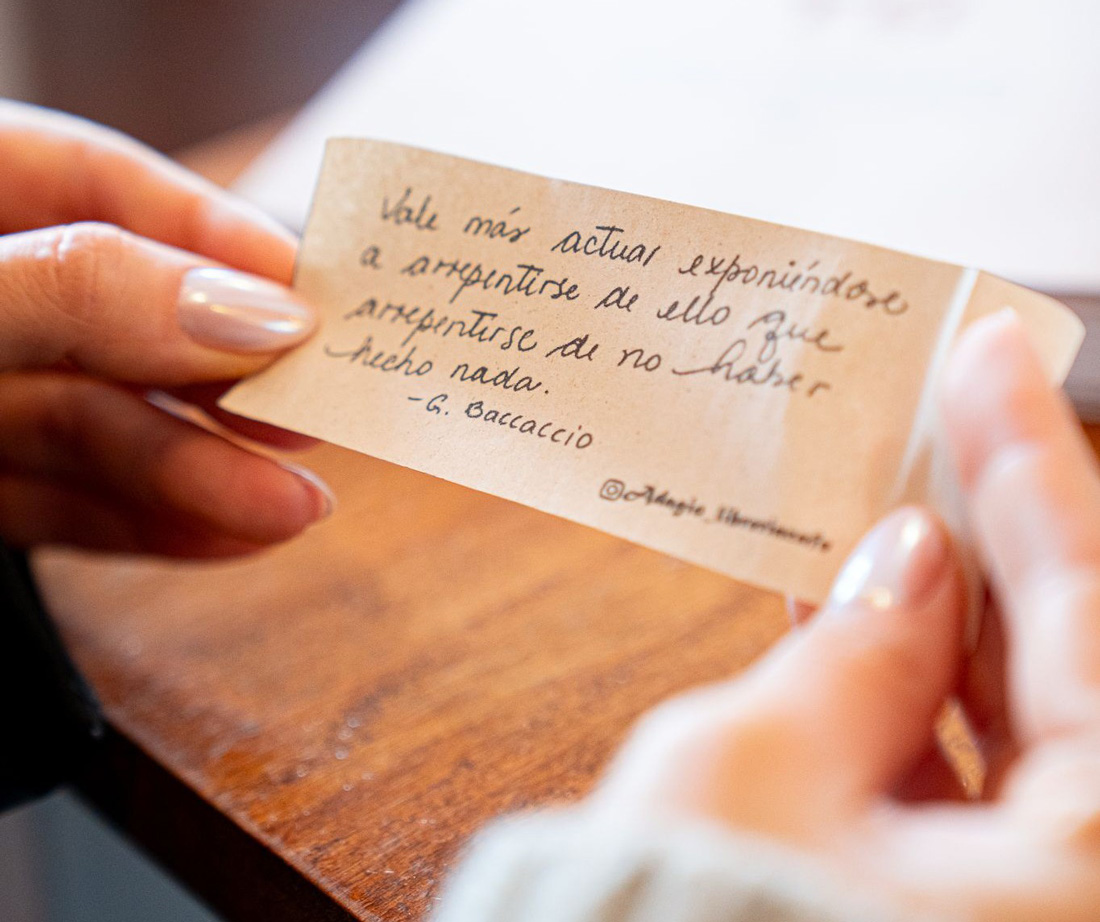 Vale más actuar exponiéndose
a arrepentirse de ello que
arrepentirse de no haber
hecho nada.
-G. Baccaccio